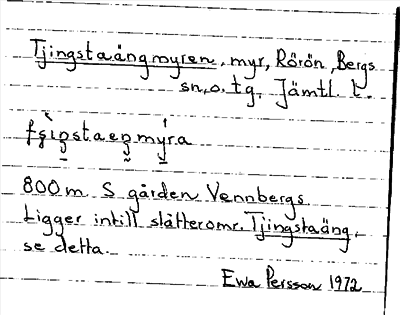 Tjingstaängmyren, myr, Rörön, Bergs
sn, o. tg. Jämtl. l.
800 m S gården Vennbergs.
Ligger intill slåtteromr. Tjingstaäng,
se detta.
Ewa Persson 1972